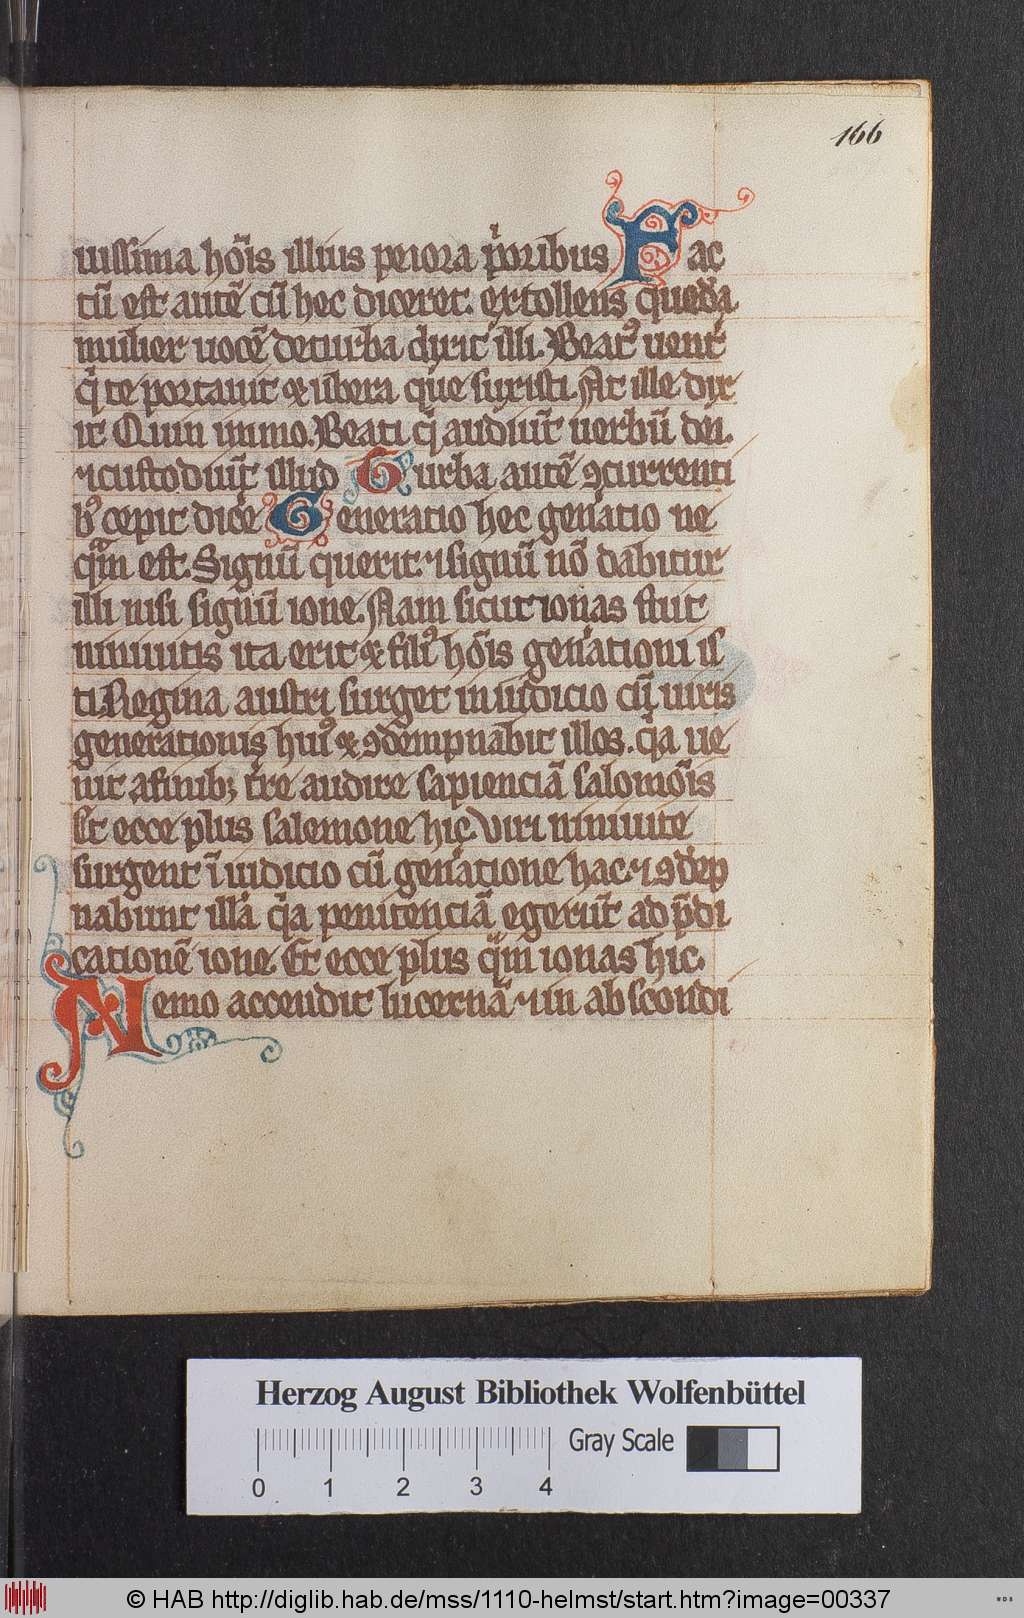 166
uissima hoı̄s illius peiora p̾oribus Fac
tū est autē cū hec diceret. extollens queda̅
mulier uocē deturba dixit illi. Beat᾽ uent̾
q̇ te portauit ⁊ ubera que suxisti. At ille dix
it. Quin immo. Beati q̇ audiūt uerbū dei.
⁊ custodiūt illud Turba autē ꝯcurrenti
b᾽ cepit dic̾e Generatio hec gen̾atio ne
qᷓm est. Signū querit. ⁊ signū nō dabitur
illi nisi signū ione. Nam sicut ionas fuit
niniuitis ita erit ⁊ fili᾽ hoı̄s gen̾ationi is
ti. Regina austri surget in iudicio cū uiris
generationis hui᾽ ⁊ ꝯdempnabit illos. qᷓa ue
nit a finib; t̾re audire sapienciā salomoı̄s
Et ecce plus salemone hic. Viri niniuite
surgent ī iudicio cū gen̾atione hac. ⁊ ꝯdep̄
nabunt illā qᷓa penitenciā egerūt ad p̄di
cationē ione. Et ecce plus qᷓm ionas hic.
Nemo accendit lucernā ⁊ in abscondi
Herzog August Bibliothek Wolfenbüttel
Gray Scale
0 1 2 3 4
© HAB http://diglib.hab.de/mss/1110-helmst/start.htm?image=00337